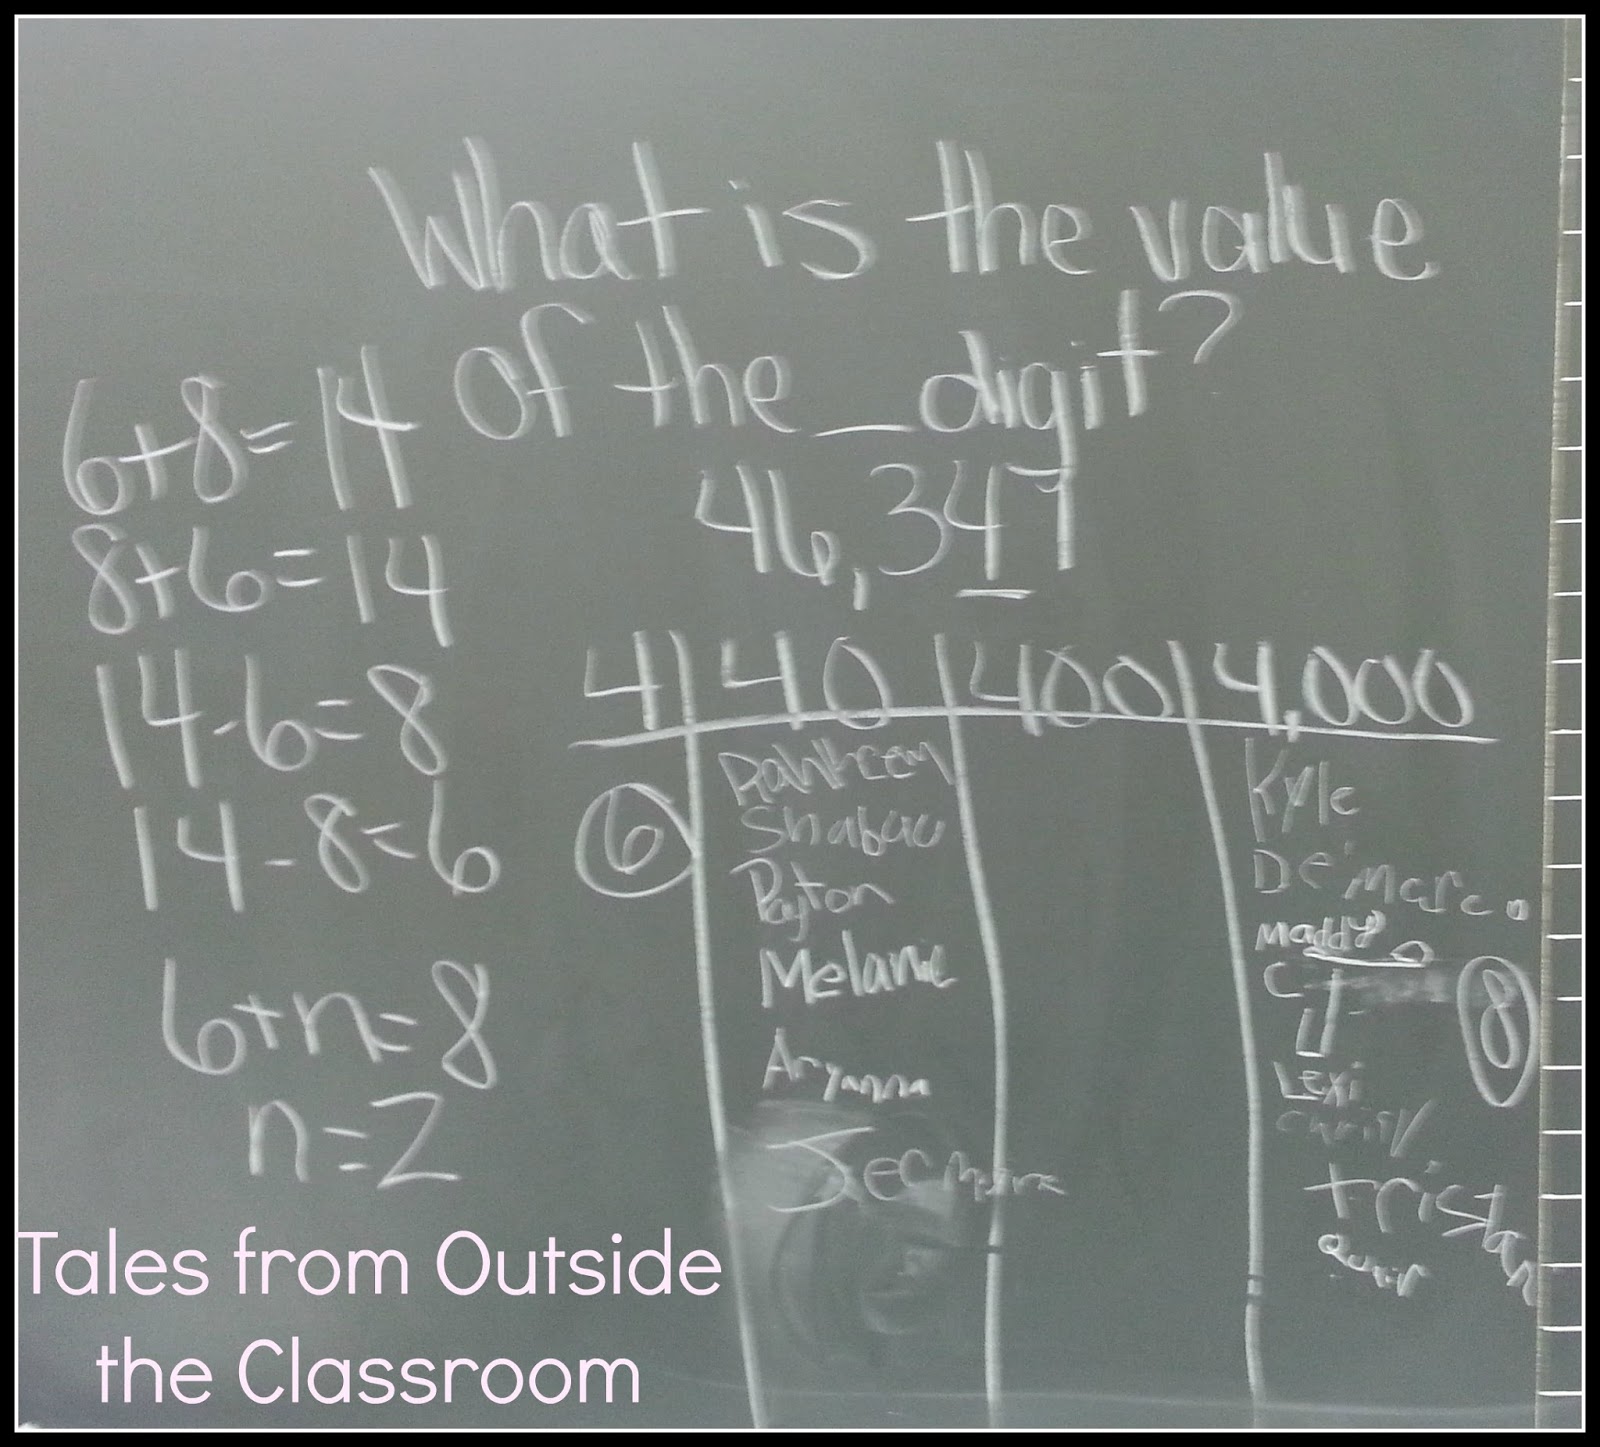 What is the value
of the _ digit?
46,347
6+8=14
8+6=14
14-6=8
14-8=6
6+n=8
n=2
4 | 40 | 400 | 4,000
6
Rahkeem
Payton
Melanie
Aryanna
Kyle
De'Marco
Maddy
CJ
Lexi
Tristan
8
Tales from Outside
the Classroom